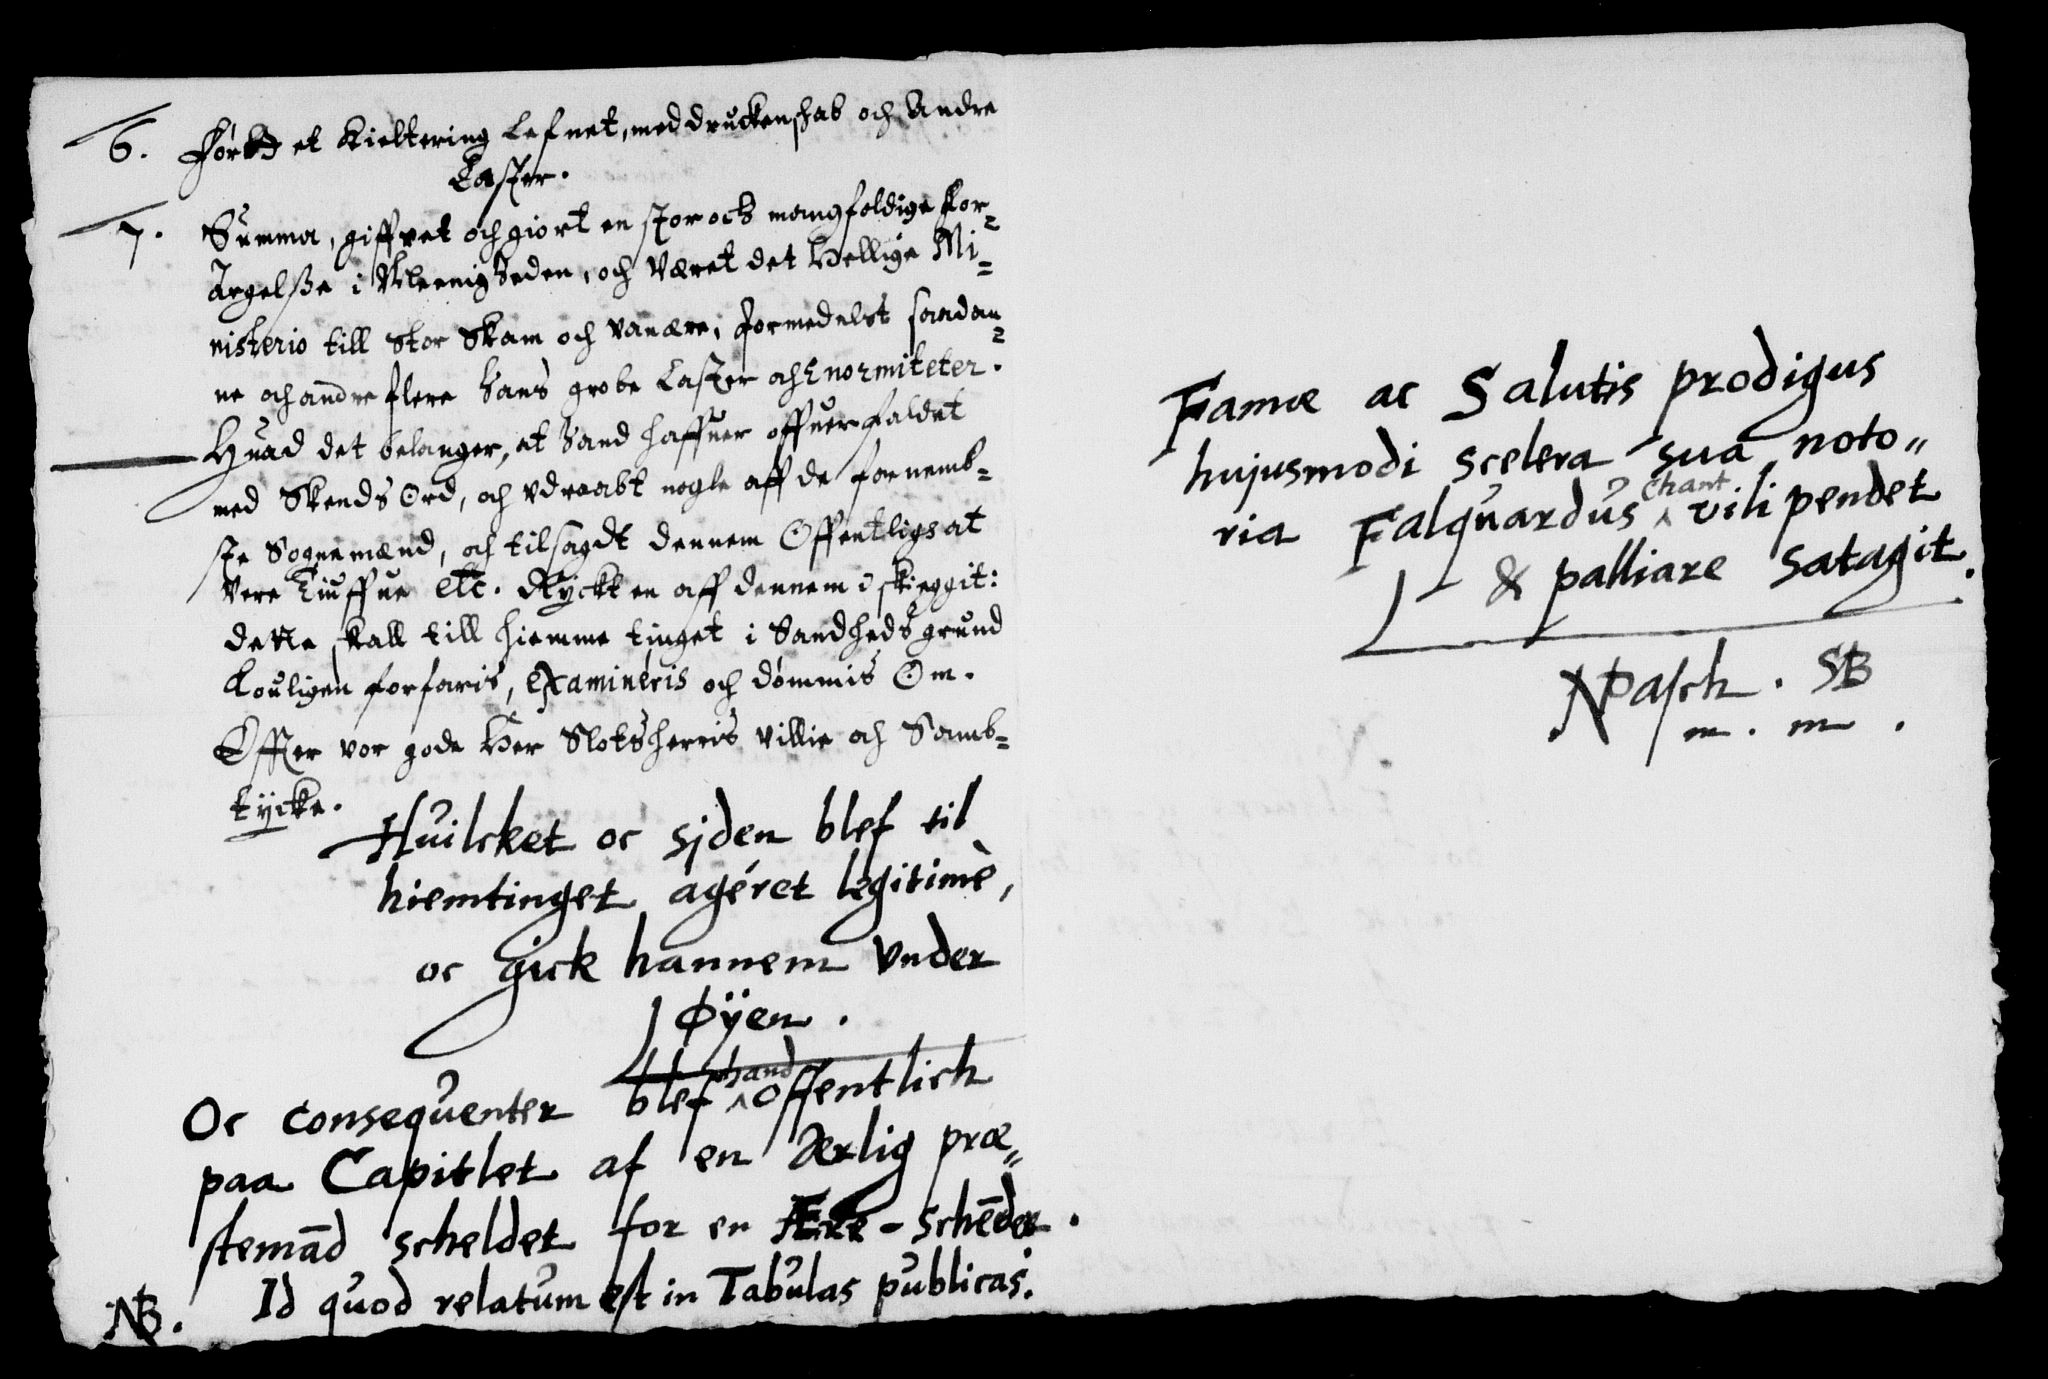 6. Førtt et Kieltering Lefnet, med druckenschab och Andre
Laster.
7. Summa, giffvet och giort en stor och mangfoldige For=
Argelsse i Meenigheden, och Været det Hellige Mi=
nisterio till stor Skam och vanære, formedelst saadan=
ne och andre flere hans grobe Laster och Enormiteter.
Huad det belanger, at hand haffuer offuerfaldet
med Skends Ord, och vdraabt nogle aff de fornemb=
ste Sognemænd, och tilsagdt dennem Offentligs at
Vere Tiuffue etc. Ryckt en aff dennem i skiegget:
dette skall till hiemme tinget i Sandheds grund
Louligen forfaris, examineris och dømmis Om.
Effter vor gode Her Slotsherris villie och Samb=
tÿcke.
Huilcket oc sjden blef til
hiemtinget agéret legitimè,
oc gick hannem Vnder
Øÿen.
Oc conseqventer blef ^hand offentlich
paa Capitlet af en Ærlig præ=
stemād scheldet for en Ære-schēder.
NB. Id quod relatum est in Tabulas publicas.
Famæ ac Salutis prodigus
hujusmodi scelera sua noto=
ria Falqvardus ^Chant. vilipendet
& palliare satagit.
NPasch. SB
m. m.